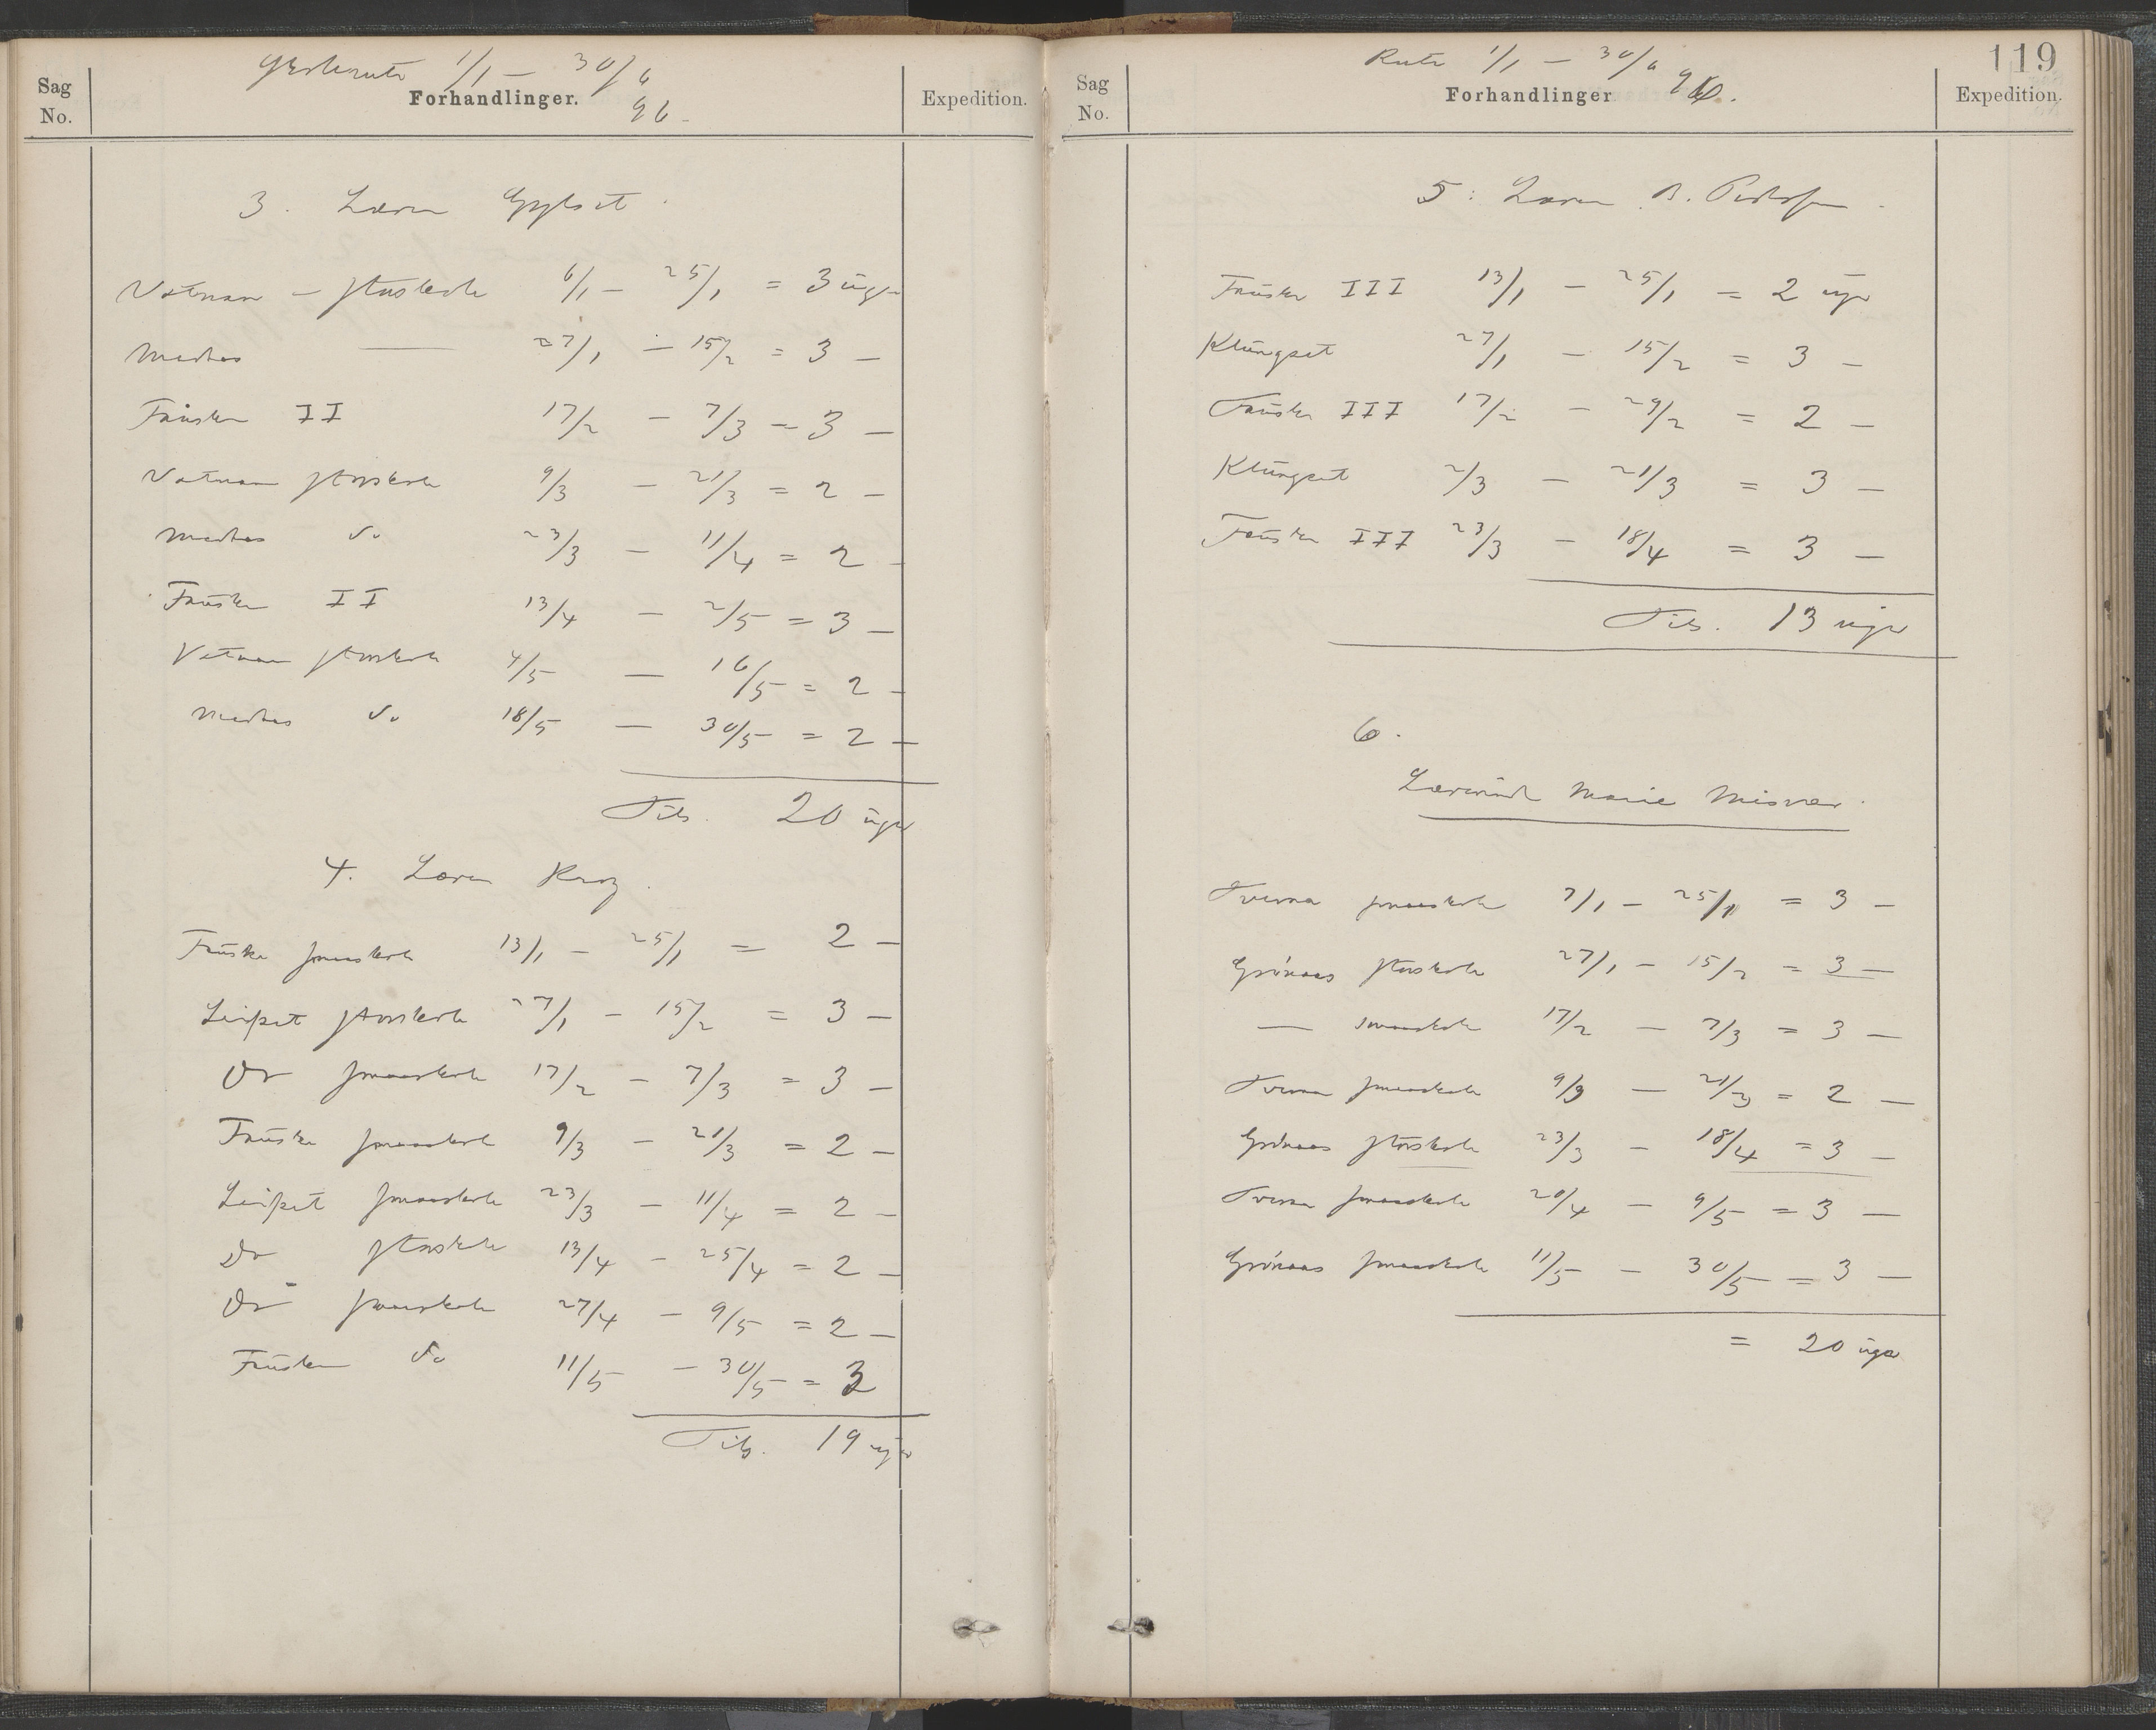 1/1 – 30/6
Sag No.
Forhandlinger.
Expedition.
96.
3. Lærer Gylset.
Vatnan – storskole 6/1 – 25/1 = 3 uger
Medaas — 27/1 – 15/2 = 3 –
Fauske II 17/2 – 7/3 – 3 –
Vatnan storskole 9/3 – 21/3 = 2 –
Medaas do 23/3 – 11/4 = 2 –
Fauske II 13/4 – 2/5 = 3 –
Vatnan storskole 4/5 – 16/5 = 2 –
Medaas do 18/5 – 30/5 = 2 –
Tils. 20 uger
4. Lærer Krog.
Fauske smaaskole 13/1 – 25/1 = 2 –
Leifset storskole 27/1 – 15/2 = 3 –
Do smaaskole 17/2 – 7/3 = 3 –
Fauske smaaskole 9/3 – 21/3 = 2 –
Leifset smaaskole 23/3 – 11/4 = 2 –
Do storskole 13/4 – 25/4 = 2 –
Do smaaskole 27/4 – 9/5 = 2 –
Fauske do 11/5 – 30/5 = 3
Tils. 19 uger
Rute 1/1 – 30/6 96.
119
Sag No.
Forhandlinger
Expedition.
5: Lærer B. Pedersen.
Fauske III 13/1 – 25/1 = 2 uger
Klungset 27/1 – 15/2 = 3 –
Fauske III 17/2 – 29/2 = 2 –
Klungset 2/3 – 21/3 = 3 –
Fauske III 23/3 – 18/4 = 3 –
Tils. 13 uger
6.
Lærerinde Marie Misvær.
Tverna smaaskole 7/1 – 25/1 = 3 –
Grønaas storskole 27/1 – 15/2 = 3 –
— smaaskole 17/2 – 7/3 = 3 –
Tverna smaaskole 9/3 – 21/3 = 2 –
Grønaas storskole 23/3 – 18/4 = 3 –
Tverna smaaskole 20/4 – 9/5 = 3 –
Grønaas smaaskole 11/5 – 30/5 = 3 –
= 20 uger